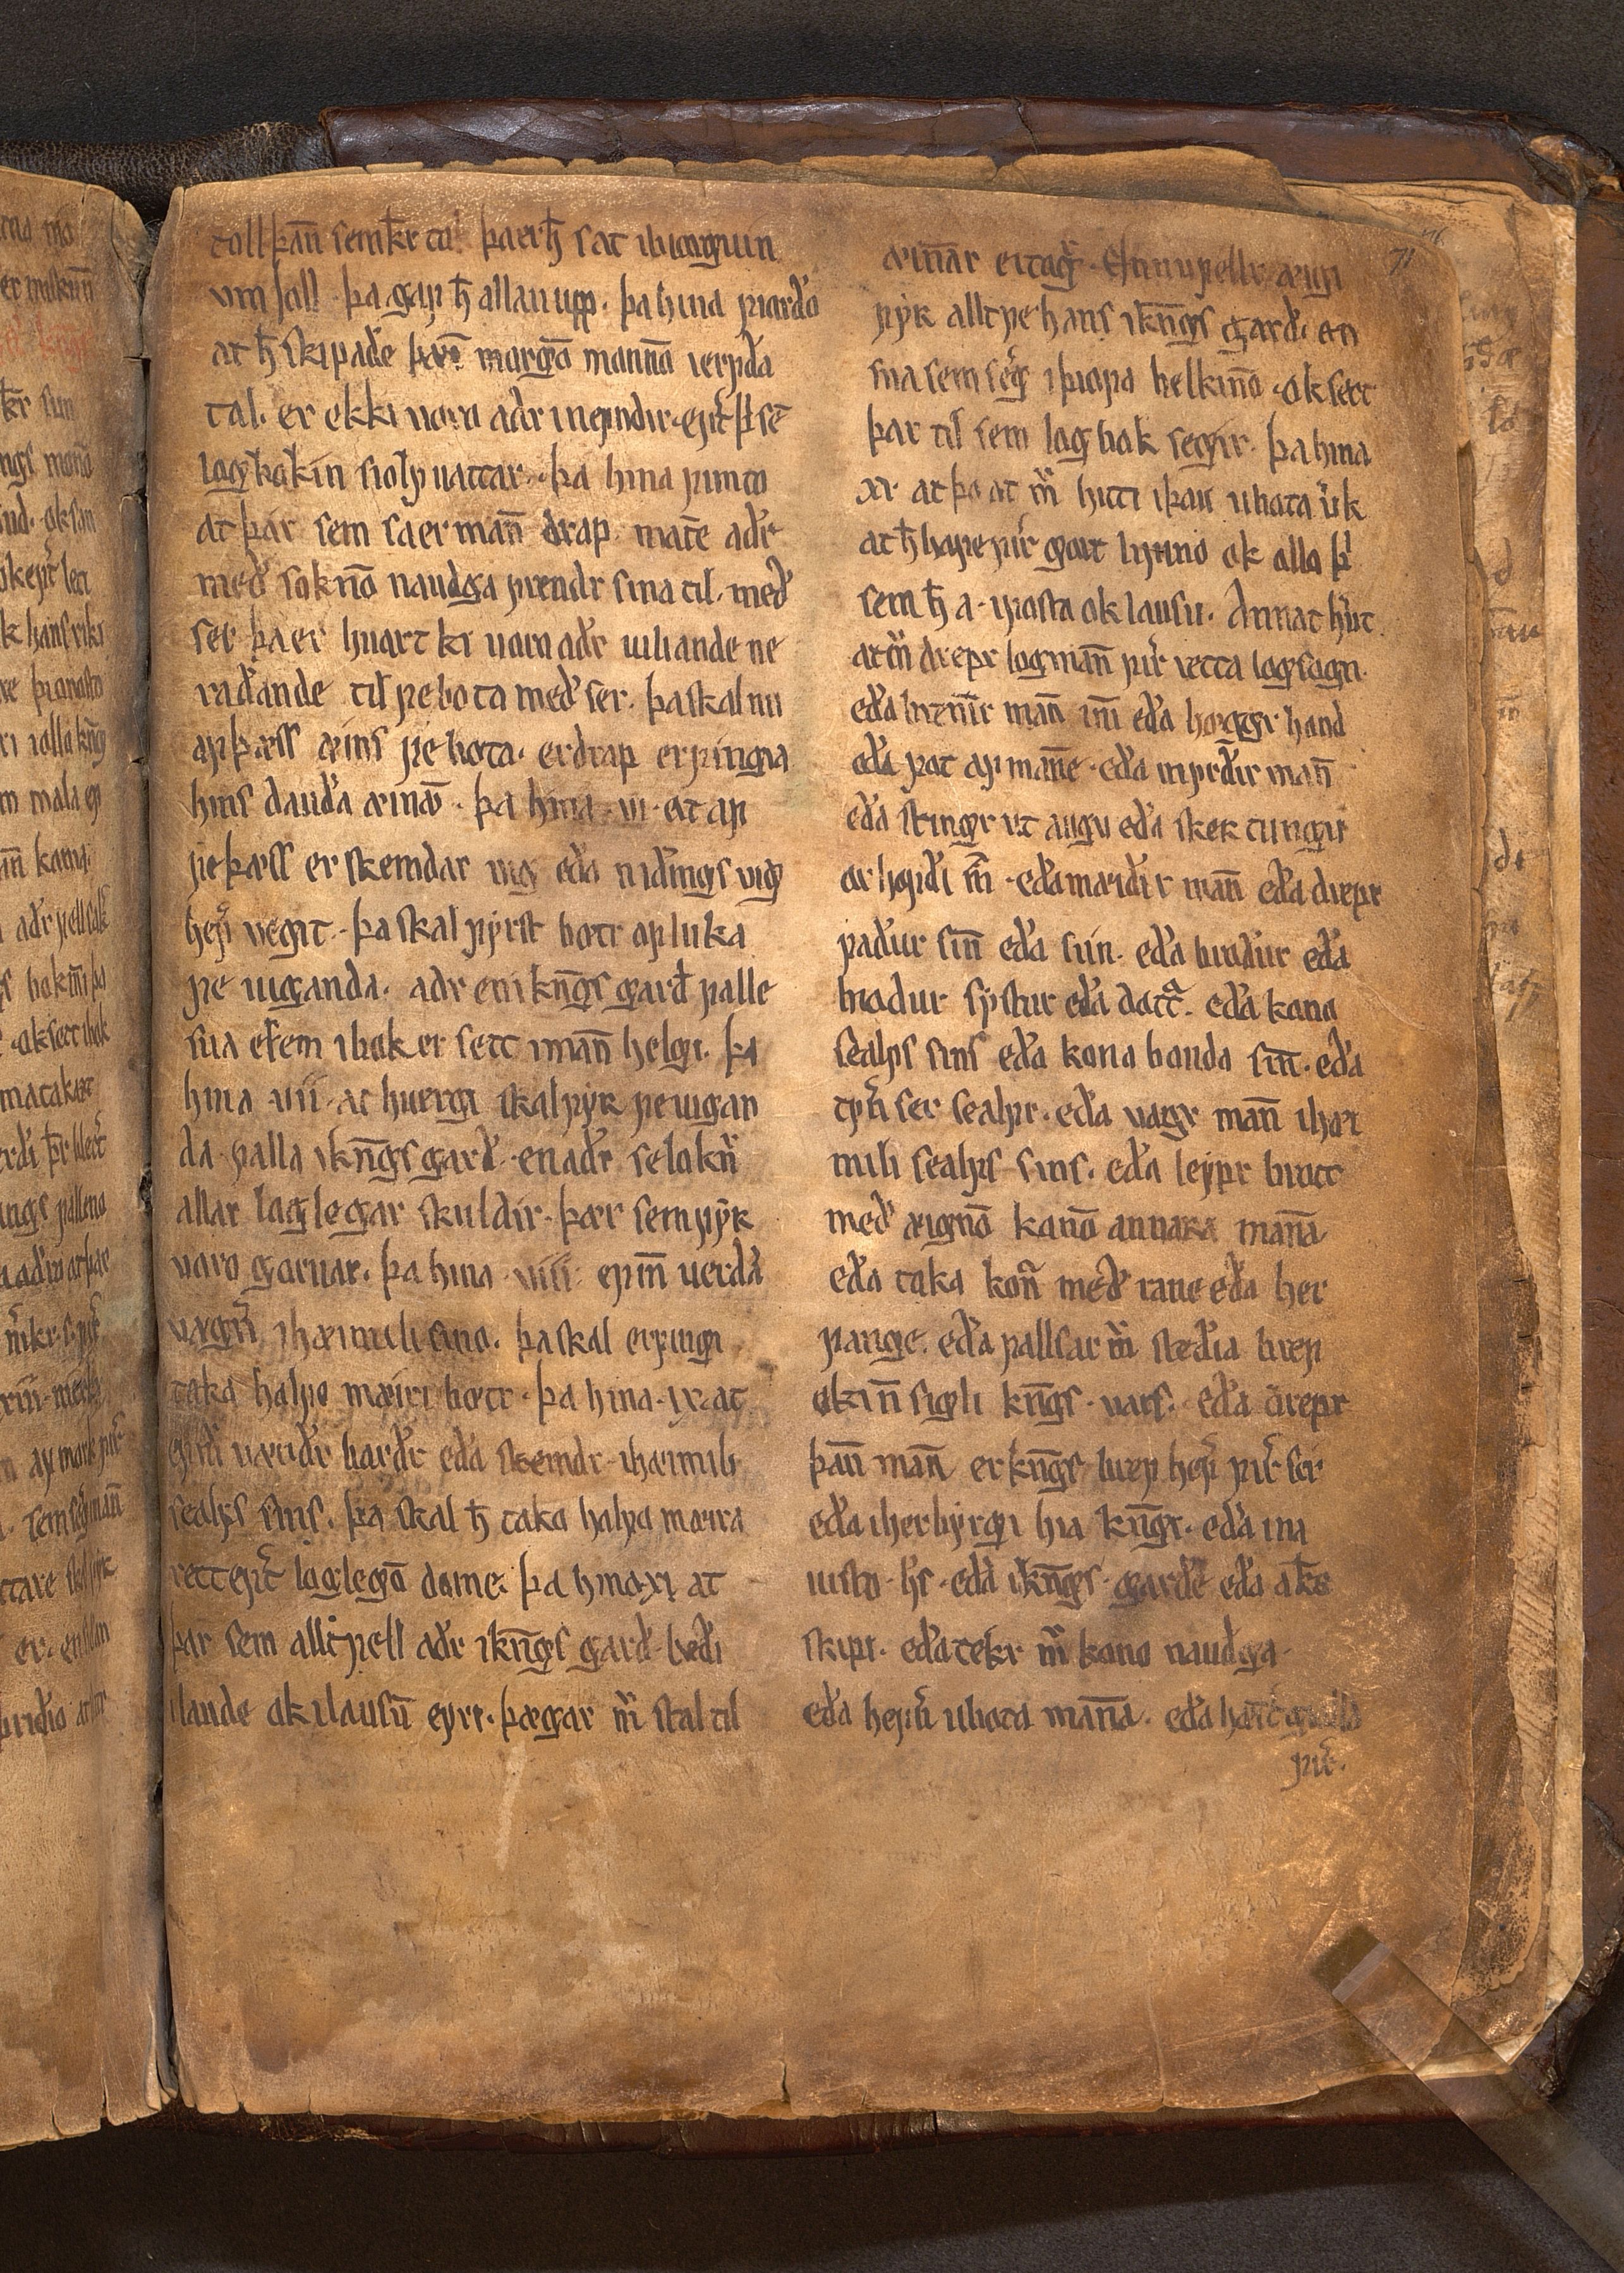 toll þan̄ sem kr̄ to þa er ħ sat i biorguin
vm joll · þa gaf ħ allan upp · þa hina fiordo
at ħ skipade mꜳrgō mannō i erfða
tal · er ekki voru aðr i nefndir · eft̄ þi sē
logbokin siolf uattar · þa hina fimto
at þar sem sa er man̄ drap · mate aðr
með soknō naudga frendr sina til · með
ser þa er huart ki voro aðr uiliande ne
radande til febota með ser · þa skal nu
af þæss æins fe bota · er drap erfingia
hins dauða æinō · þa hina · vi · at af
fe þæss er skemdar vig eða niðings vig
hef̄ vegit · þa skal fyrst botr afluka
fe uiganda · aðr en i kn̄gs gard falle
sua ē sem i bok er sett i man̄ helgi · þa
hina vii · at huergi skal fyr fe uigan
da falla i kn̄gs gard · en aðr se lokn̄
allar laglegar skuldir · þær sem fyr
voro goruar · þa hina · viii · ef m̄ uerda
vægn̄ i hæimili sino · þa skal erfingi
taka halfo mæiri botr · þa hina · ix · at
ef m̄ værðr barðr eða stemdr · i hæimili
sealfs sins · þa skal ħ taka halfo mæira
rett eft̄ loglegō dome · þa hina xi at
þar sem allt fell aðr i kn̄gs gard · bedi
i lande ok i lausū eyri · þægar m̄ stal til
æinnar ertogr · En nu fellr æigi
fyr allt fe hans i kn̄gs gard · en
sua sem seḡ i þiofa helkinō · ok sett
þar til sem log bok segir · þa hina
xii · at þo at m̄ hitti i þau ubota u̇k
at ħ hafe fir̄ gort lifino ok allo þi
sem ħ a · i fostu ok lausu · Annat hūt
at m̄ drepr logman̄ fir̄ retta logsogn
eða brennir man̄ in̄i eða hoggr hand
eða fot af man̄e · eða myrðir man̄
eða stingr vt augu eða sker tungu
or hofði m̄ · eða mæiðir man̄ eða drepr
fadur sin̄ eða sun · eða brodur eða
modur systur eða dottr · eða kono
sealfs sins eða kona bonda sin̄ · eða
tyn̄ ser sealfr · eða vægr man̄ i hæi
mili sealfs sins · eða leypr brott
með æignō konō annara man̄a
eða taka kon̄ með rane eða her
fange · eða fallsar m̄ stedia bref
ok in̄ sigli kn̄gs · vars · eða drepr
þan̄ man̄ er kn̄gs bref hef̄ fir̄ ser
eða i herbyrgi hia kn̄gi · eða ina
uisto · hs · eða i kn̄gs · garde eða a ks̄
skipi · eða tekr m̄ kono naudga
eða hefn̄ ubota man̄a · eða
fir̄ ·